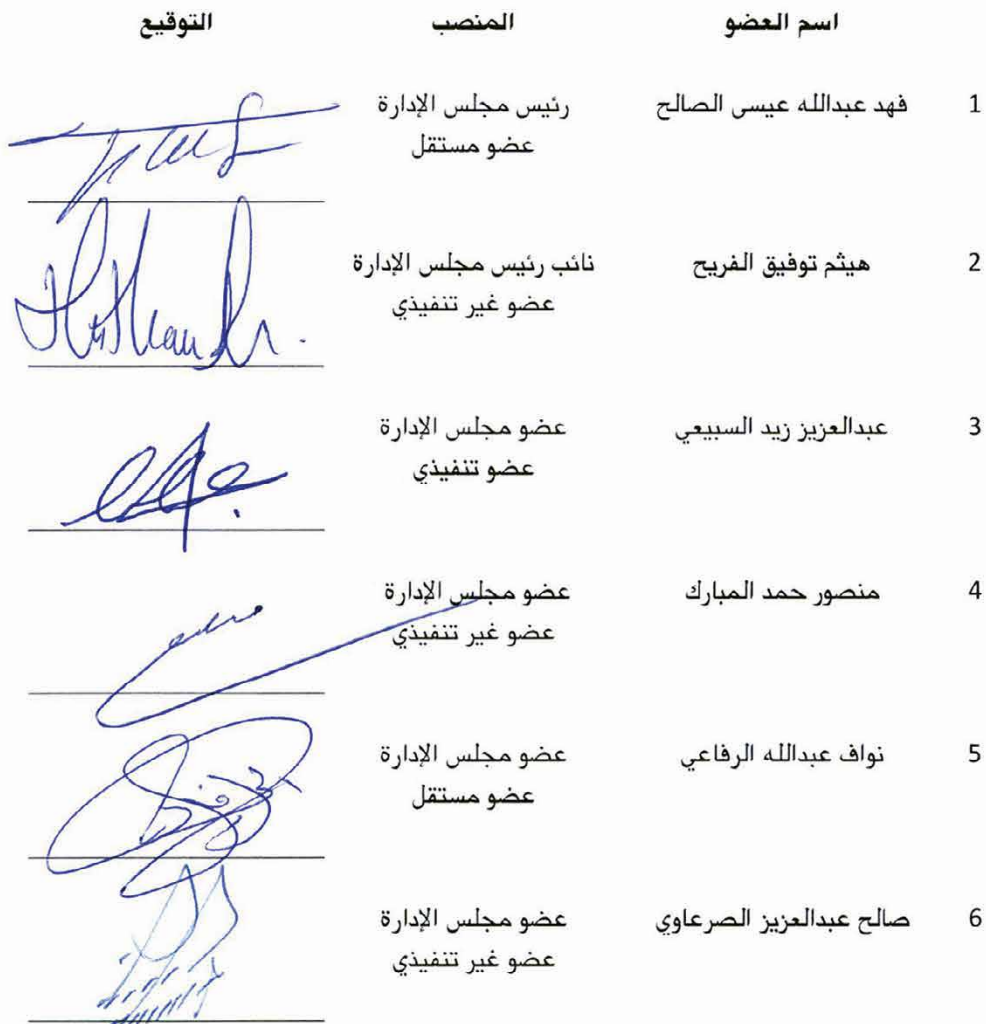 اسم العضو المنصب التوقيع
1 فهد عبدالله عيسى الصالح رئيس مجلس الإدارة
عضو مستقل
2 هيثم توفيق الفريح نائب رئيس مجلس الإدارة
عضو غير تنفيذي
3 عبدالعزيز زيد السبيعي عضو مجلس الإدارة
عضو تنفيذي
4 منصور حمد المبارك عضو مجلس الإدارة
عضو غير تنفيذي
5 نواف عبدالله الرفاعي عضو مجلس الإدارة
عضو مستقل
6 صالح عبدالعزيز الصرعاوي عضو مجلس الإدارة
عضو غير تنفيذي